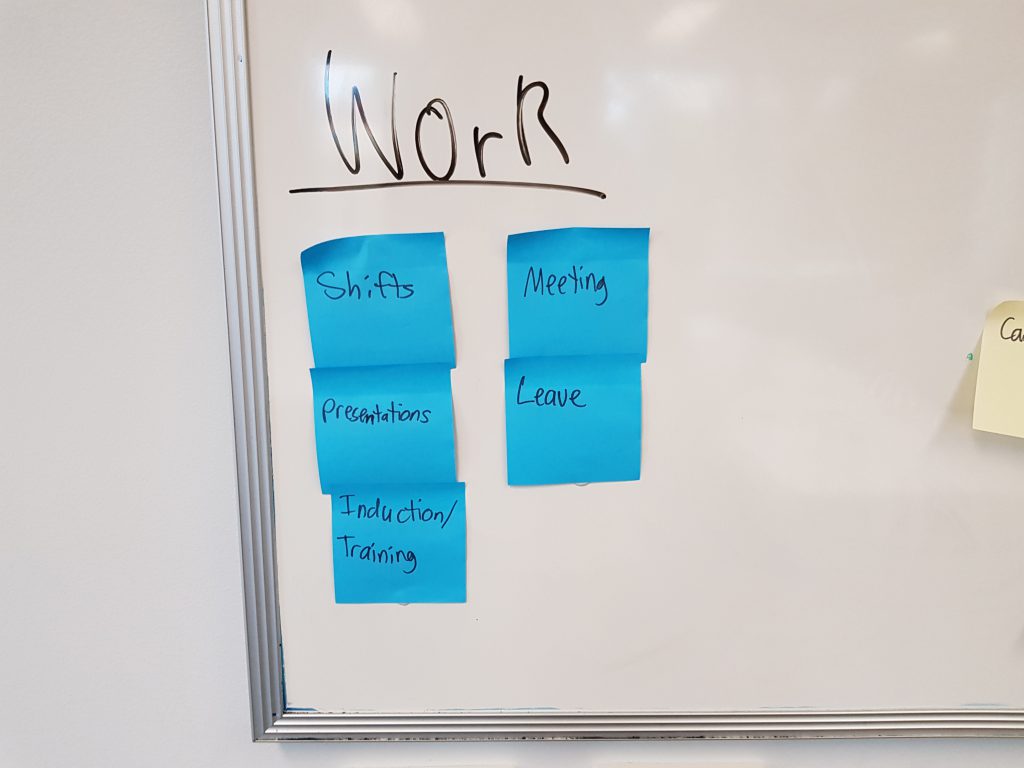 Work
Shifts
Presentations
Induction/
Training
Meeting
Leave